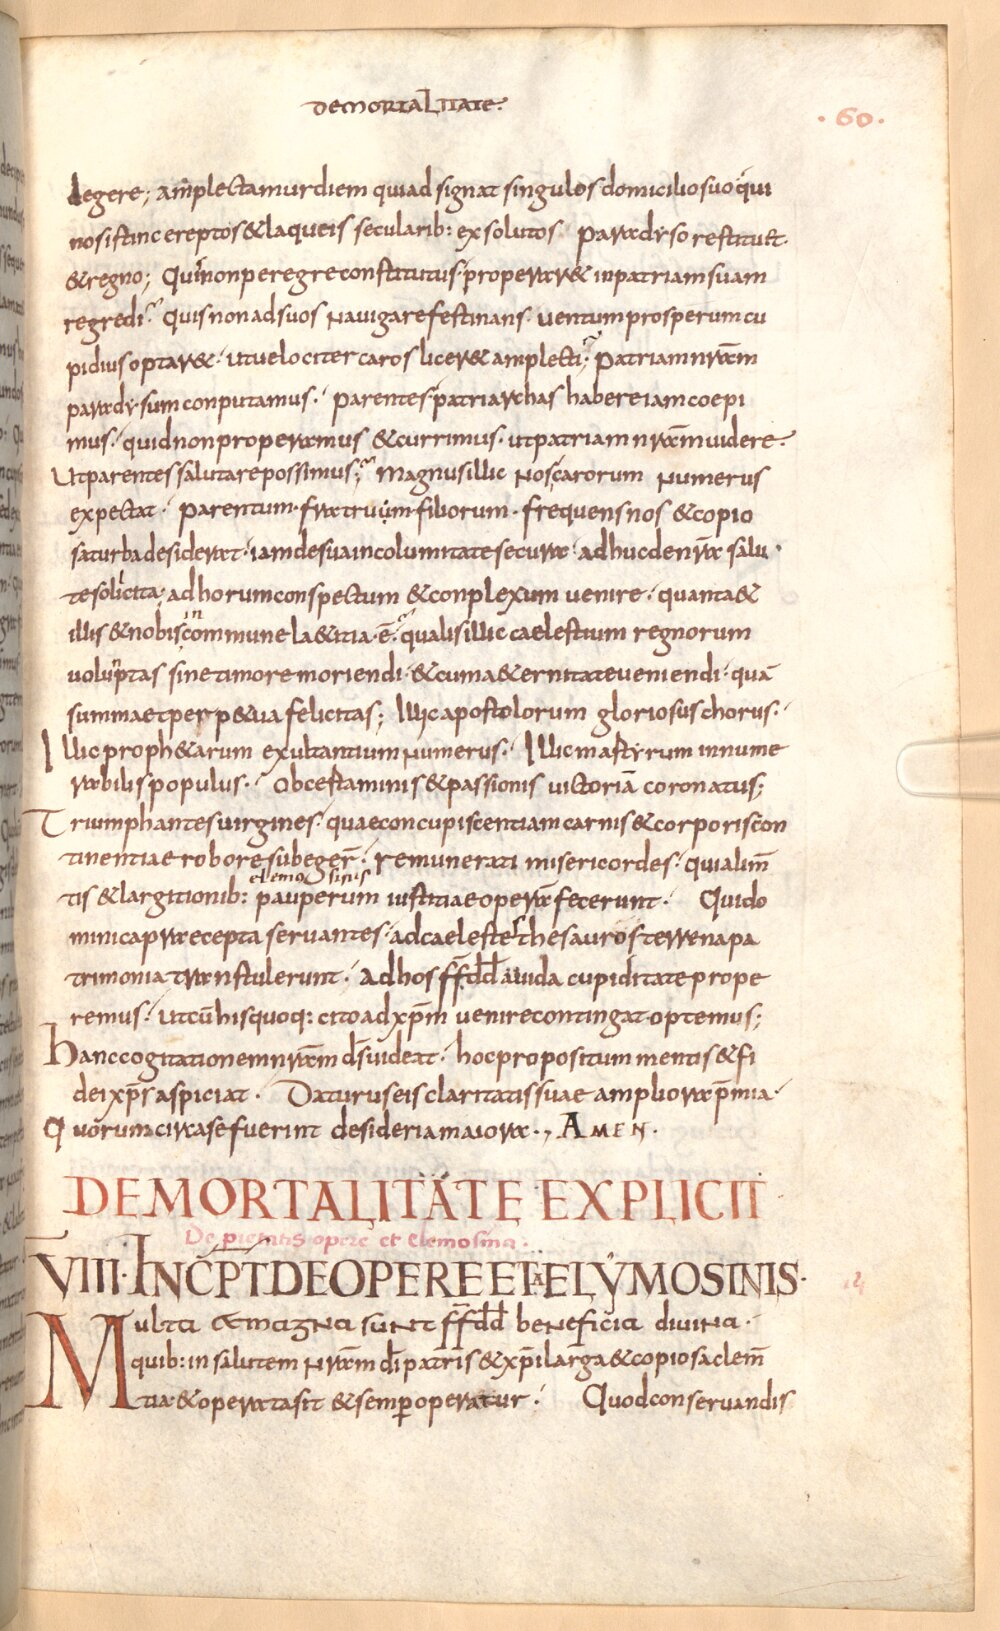 DE MORTALITATE.
.60.
degere; amplectamur diem qui adsignat singulos domicilio suo qui
nos istinc ereptos & laqueis secularib: exsolutos paradyso restituet
& regno; Quis non peregre constitutus properaret in patriam suam
regredi. Quis non ad suos navigare festinans. ventum prosperum cu
pidius optaret. ut velociter caros liceret amplecti; Patriam nram
paradysum conputamus. Parentes patriarchas habere iam coepi
mus. quid non properamus & currimus. ut patriam nram videre
Ut parentes salutare possimus; Magnus illic nos carorum numerus
expectat. Parentum. fratruum. filiorum. frequens nos & copio
sa turba desiderat. iam de sua incolumitate secura. adhuc de nra salu
te sollicita; ad horum conspectum & conplexum venire. quanta &
illis & nobis in commune laetitia ē. qualis illic caelestium regnorum
voluptas sine timore moriendi. & cum aeternitate veniendi. quā
summa et perpetua felicitas; Illic apostolorum gloriosus chorus.
Illic prophetarum exultantium numerus. Illic martyrum innume
rabilis populus. Ob certaminis & passionis victoriā coronatus;
Triumphantes virgines. quae concupiscentiam carnis & corporis con
tinentiae robore subegeř. remunerati misericordes. qui alim̄
elemosinis
tis & largitionib: pauperum iustitiae opera fecerunt. Qui do
minica praecepta servantes. ad caelestes thesauros terrena pa
trimonia transtulerunt. Ad hos ff dd avida cupiditate prope
remus. ut cū his quoq: cito ad xp̄m venire contingat optemus;
Hanc cogitationem nram ds videat. hoc propositum mentis & fi
dei xp̄s aspiciat. Daturus eis claritatis suae ampliora p̄mia.
Quorum circa se fuerint desideria maiora., AMEN.
DE MORTALITATE EXPLICIT
De pietatis opere et elemosina.
VIII. INCPT DE OPERE ET AELYMOSINIS.
Multa & magna sunt ff dd beneficia divina.
quib: in salutem nram di patris & xp̄i larga & copiosa clem̄
tia & operata sit & semper operatur. Quod conservandis